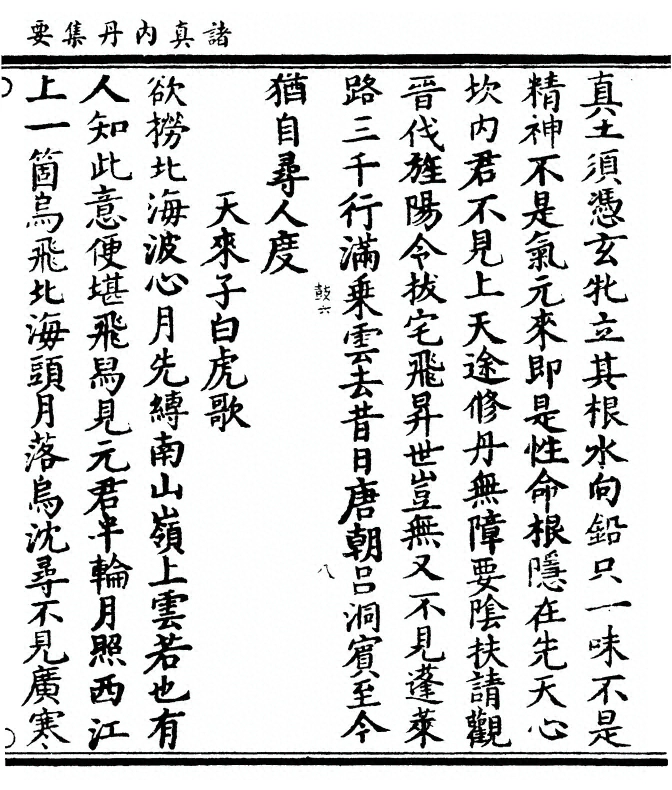 諸真內丹集要
真土須憑玄牝立其根水向鉛只一味不是
精神不是氣元來即是性命根隱在先天心
坎內君不見上天途修丹無障要陰扶請觀
晉代旌陽令拔宅飛昇世豈無又不見蓬萊
路三千行滿乘雲去昔日唐朝呂洞賓至今
猶自尋人度
鼓六
八
天來子白虎歌
欲撈北海波心月先縛南山嶺上雲若也有
人知此意便堪飛舄見元君半輪月照西江
上一箇烏飛北海頭月落烏沈尋不見廣寒